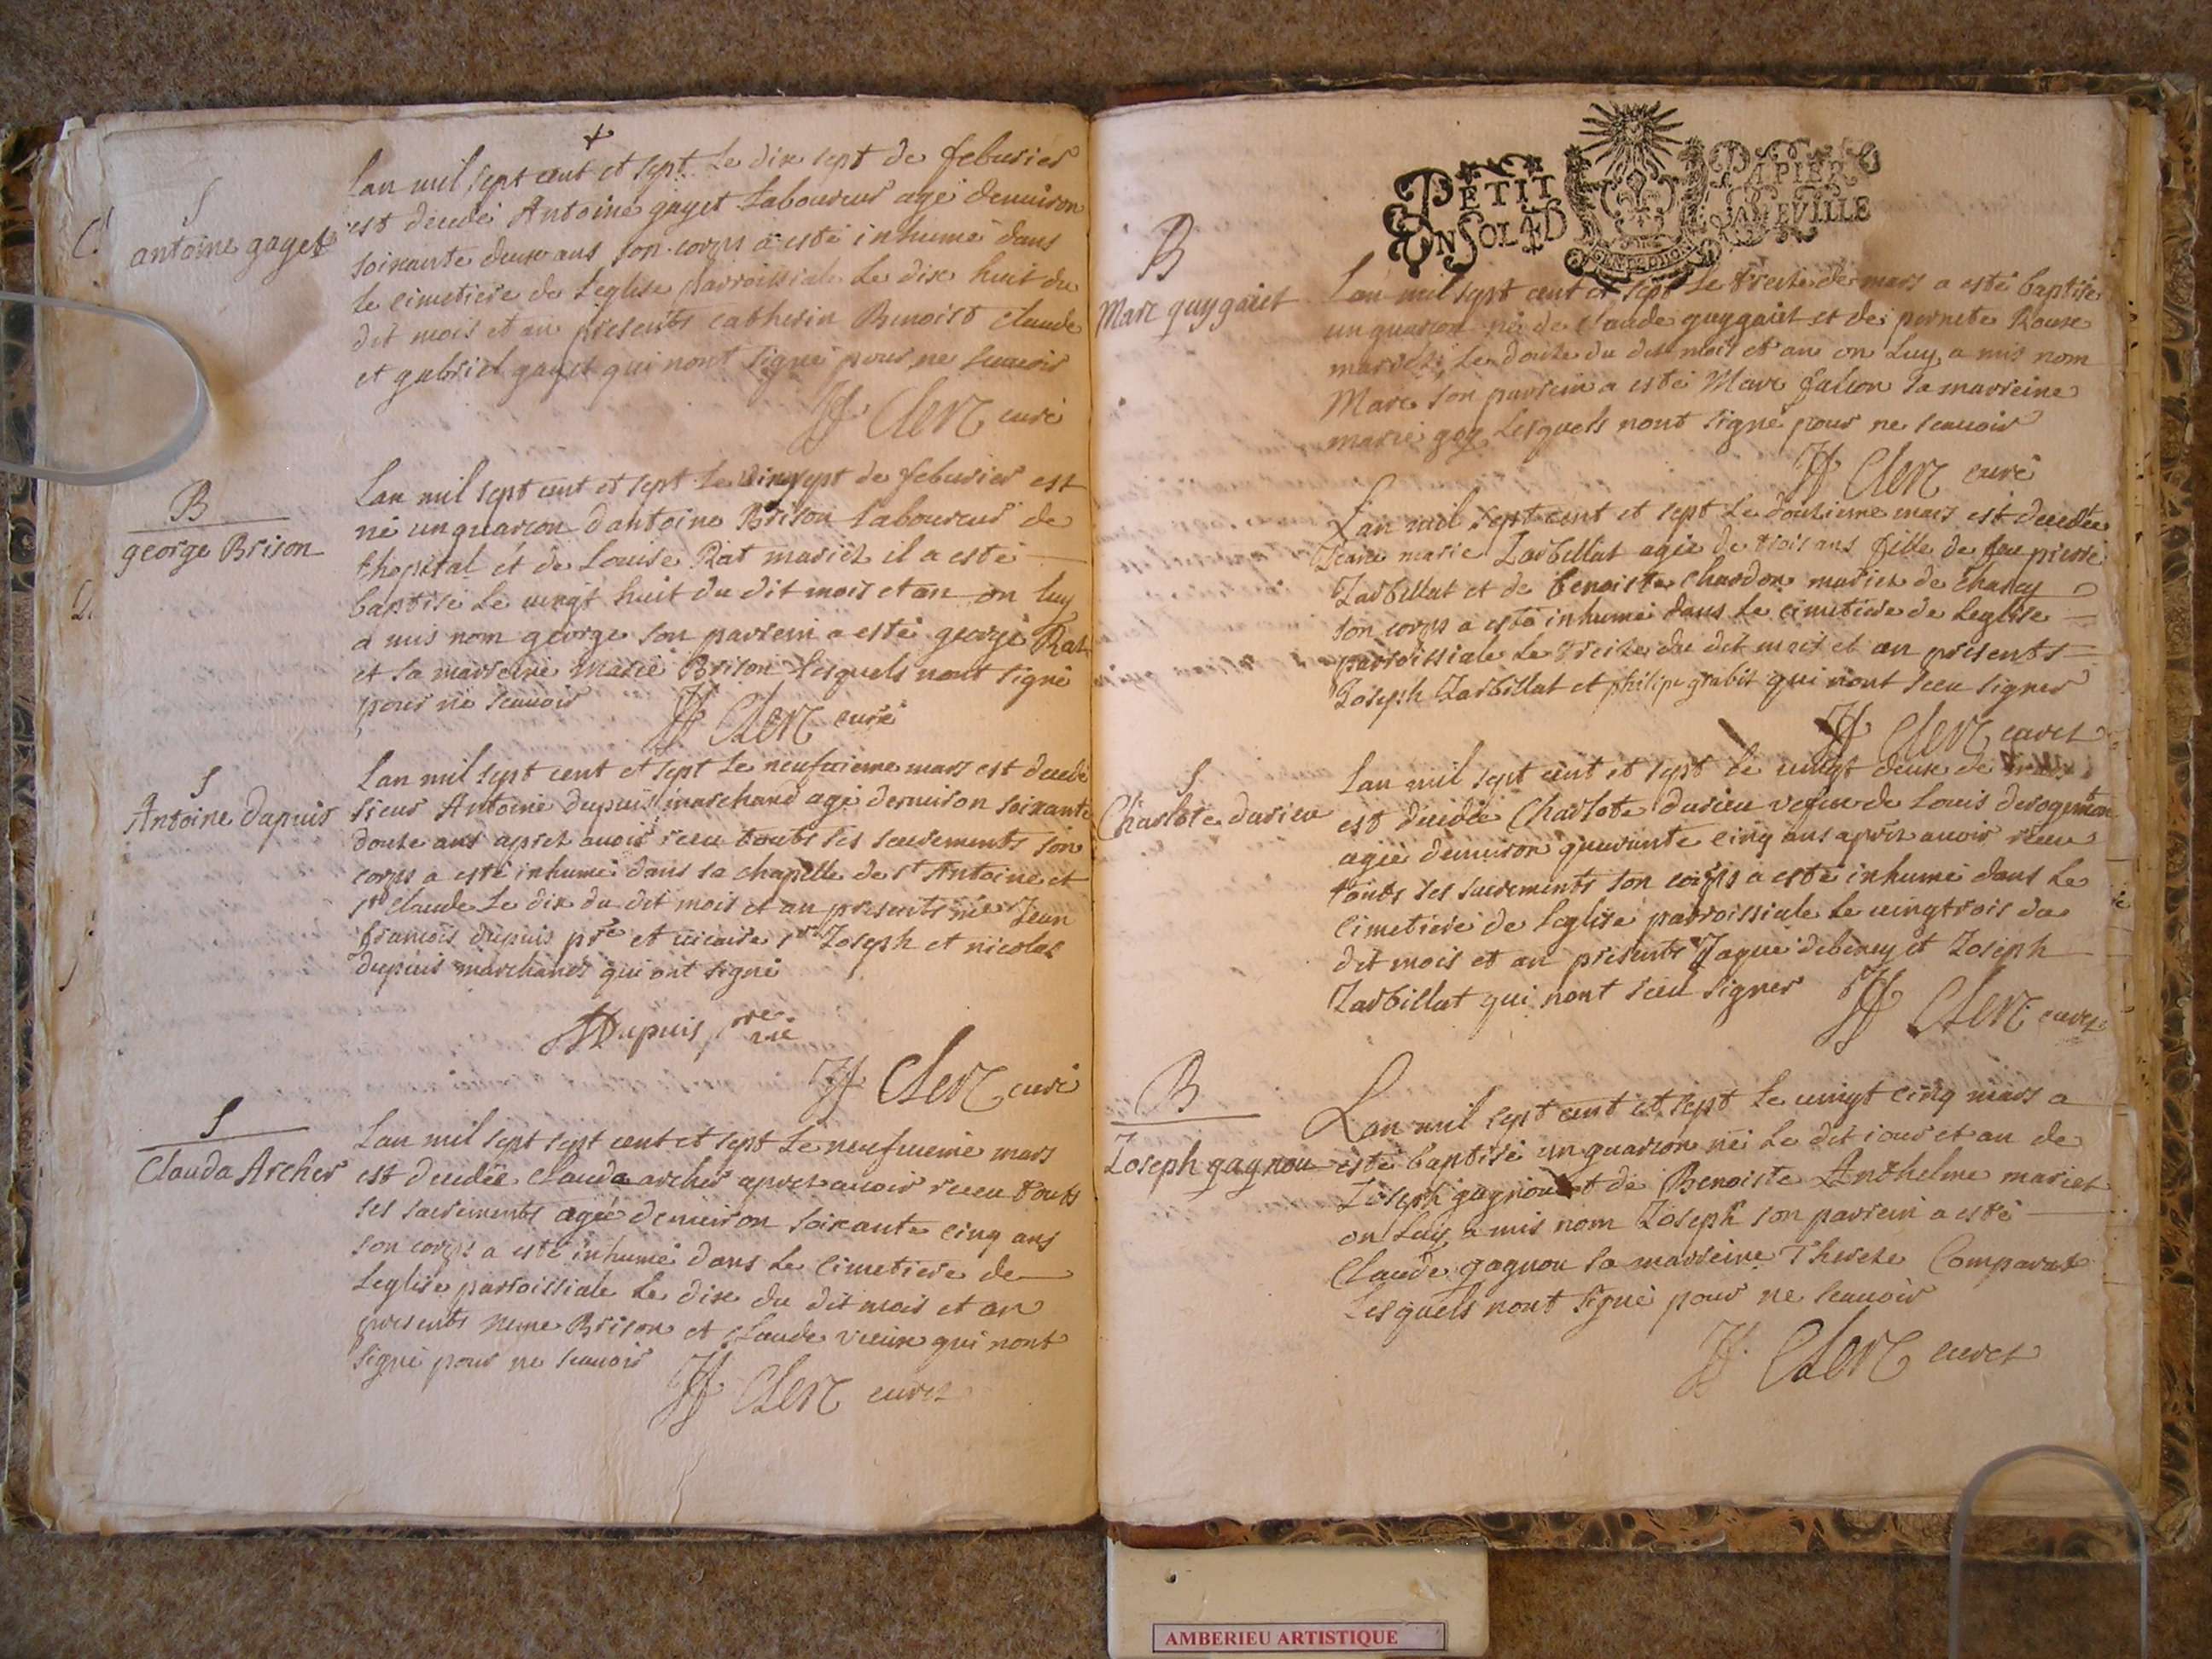 S
antoine gayet
Lan mil sept cent et sept Le dix sept de febvrier
est decedé Antoine gayet Laboureur agé denuiron
soixante deux ans son corps a esté inhumé dans
le cimetiere de Leglise parroissiale Le dix huit du
dit mois et an presents catherin Benoist claude
et gabriel gayet qui nont signé pour ne scauoir
JF Clerc curé
B
george Brison
Lan mil sept cent et sept Le vingsept de febvrier est
né un guarcon dantoine Brison Laboureur de
thopital et de Louise Rat mariez il a esté
baptisé Le vingt huit du dit mois et an on luy
a mis nom george son parrein a esté george Rat
et sa marreine marie Brison Lesquels nont signé
pour ne scauoir JF Clerc curé
S
Antoine dupuis
Lan mil sept cent et sept Le neufuieme mars est decedé
sieur Antoine dupuis marchand agé denuiron soixante
douze ans aprez auoir receu touts ses sacrements son
corps a esté inhumé dans sa chapelle de st Antoine et
st claude Le dix du dit mois et an presents Jean
francois dupuis pre et vicaire sr Joseph et nicolas
dupuis marchands qui ont signé
JF Dupuis pre
JF Clerc curé
S
Clauda Archer
Lan mil sept sept cent et sept Le neufuieme mars
est decedée Clauda archer aprez auoir receu touts
ses sacrements agée denuiron soixante cinq ans
son corps a esté inhumé dans Le Cimetiere de
Leglise parroissiale Le dix du dit mois et an
presents Brison et Claude vieux qui nont
signé pour ne scauoir JF Clerc curez
PETIT PAPIER
UN SOL 4D LA FEVILLE
B
Marc guygaiet
Lan mil sept cent et sept Le treize de mars a esté baptisé
un guarcon né de claude guygaiet et de pernete Roux
mariez Le douze du dit mois et an on Luy a mis nom
Marc son parrein a esté Marc falcon sa marreine
marie goy Lesquels nont signé pour ne scauoir
JF Clerc curé
Lan mil sept cent et sept Le douzieme mars est decedée
Jeane marie Jarbillat agée de trois ans fille de feu pierre
Jarbillat et de benoiste chardon mariez de chancy
son corps a esté inhumé dans Le cimetiere de Leglise
parroissiale Le treize du dit mois et an presents
Joseph Jarbillat et philipe grabit qui nont sceu signer
JF Clerc curez
S
Charlote durieu
Lan mil sept cent et sept Le vingt deux de mars
est decedée Charlote durieu vefue de Louis
agée denuiron quarante cinq ans aprez auoir receu
touts ses sacrements son corps a esté inhumé dans Le
Cimetiere de Leglise parroissiale Le vingtrois du
dit mois et an presents Jaque debeney et Joseph
Jarbillat qui nont sceu signer JF Clerc curez
B
Joseph gagnou
Lan mil sept cent et sept Le vingt cinq mars a
esté baptisé un guarcon né Le dit iour et an de
Joseph gagnou et de Benoiste Anthelme mariez
on Luy a mis nom Joseph son parrein a esté
Claude gagnou sa marreine Thereze Comparat
Lesquels nont signé pour ne scauoir
JF Clerc curez
AMBERIEU ARTISTIQUE